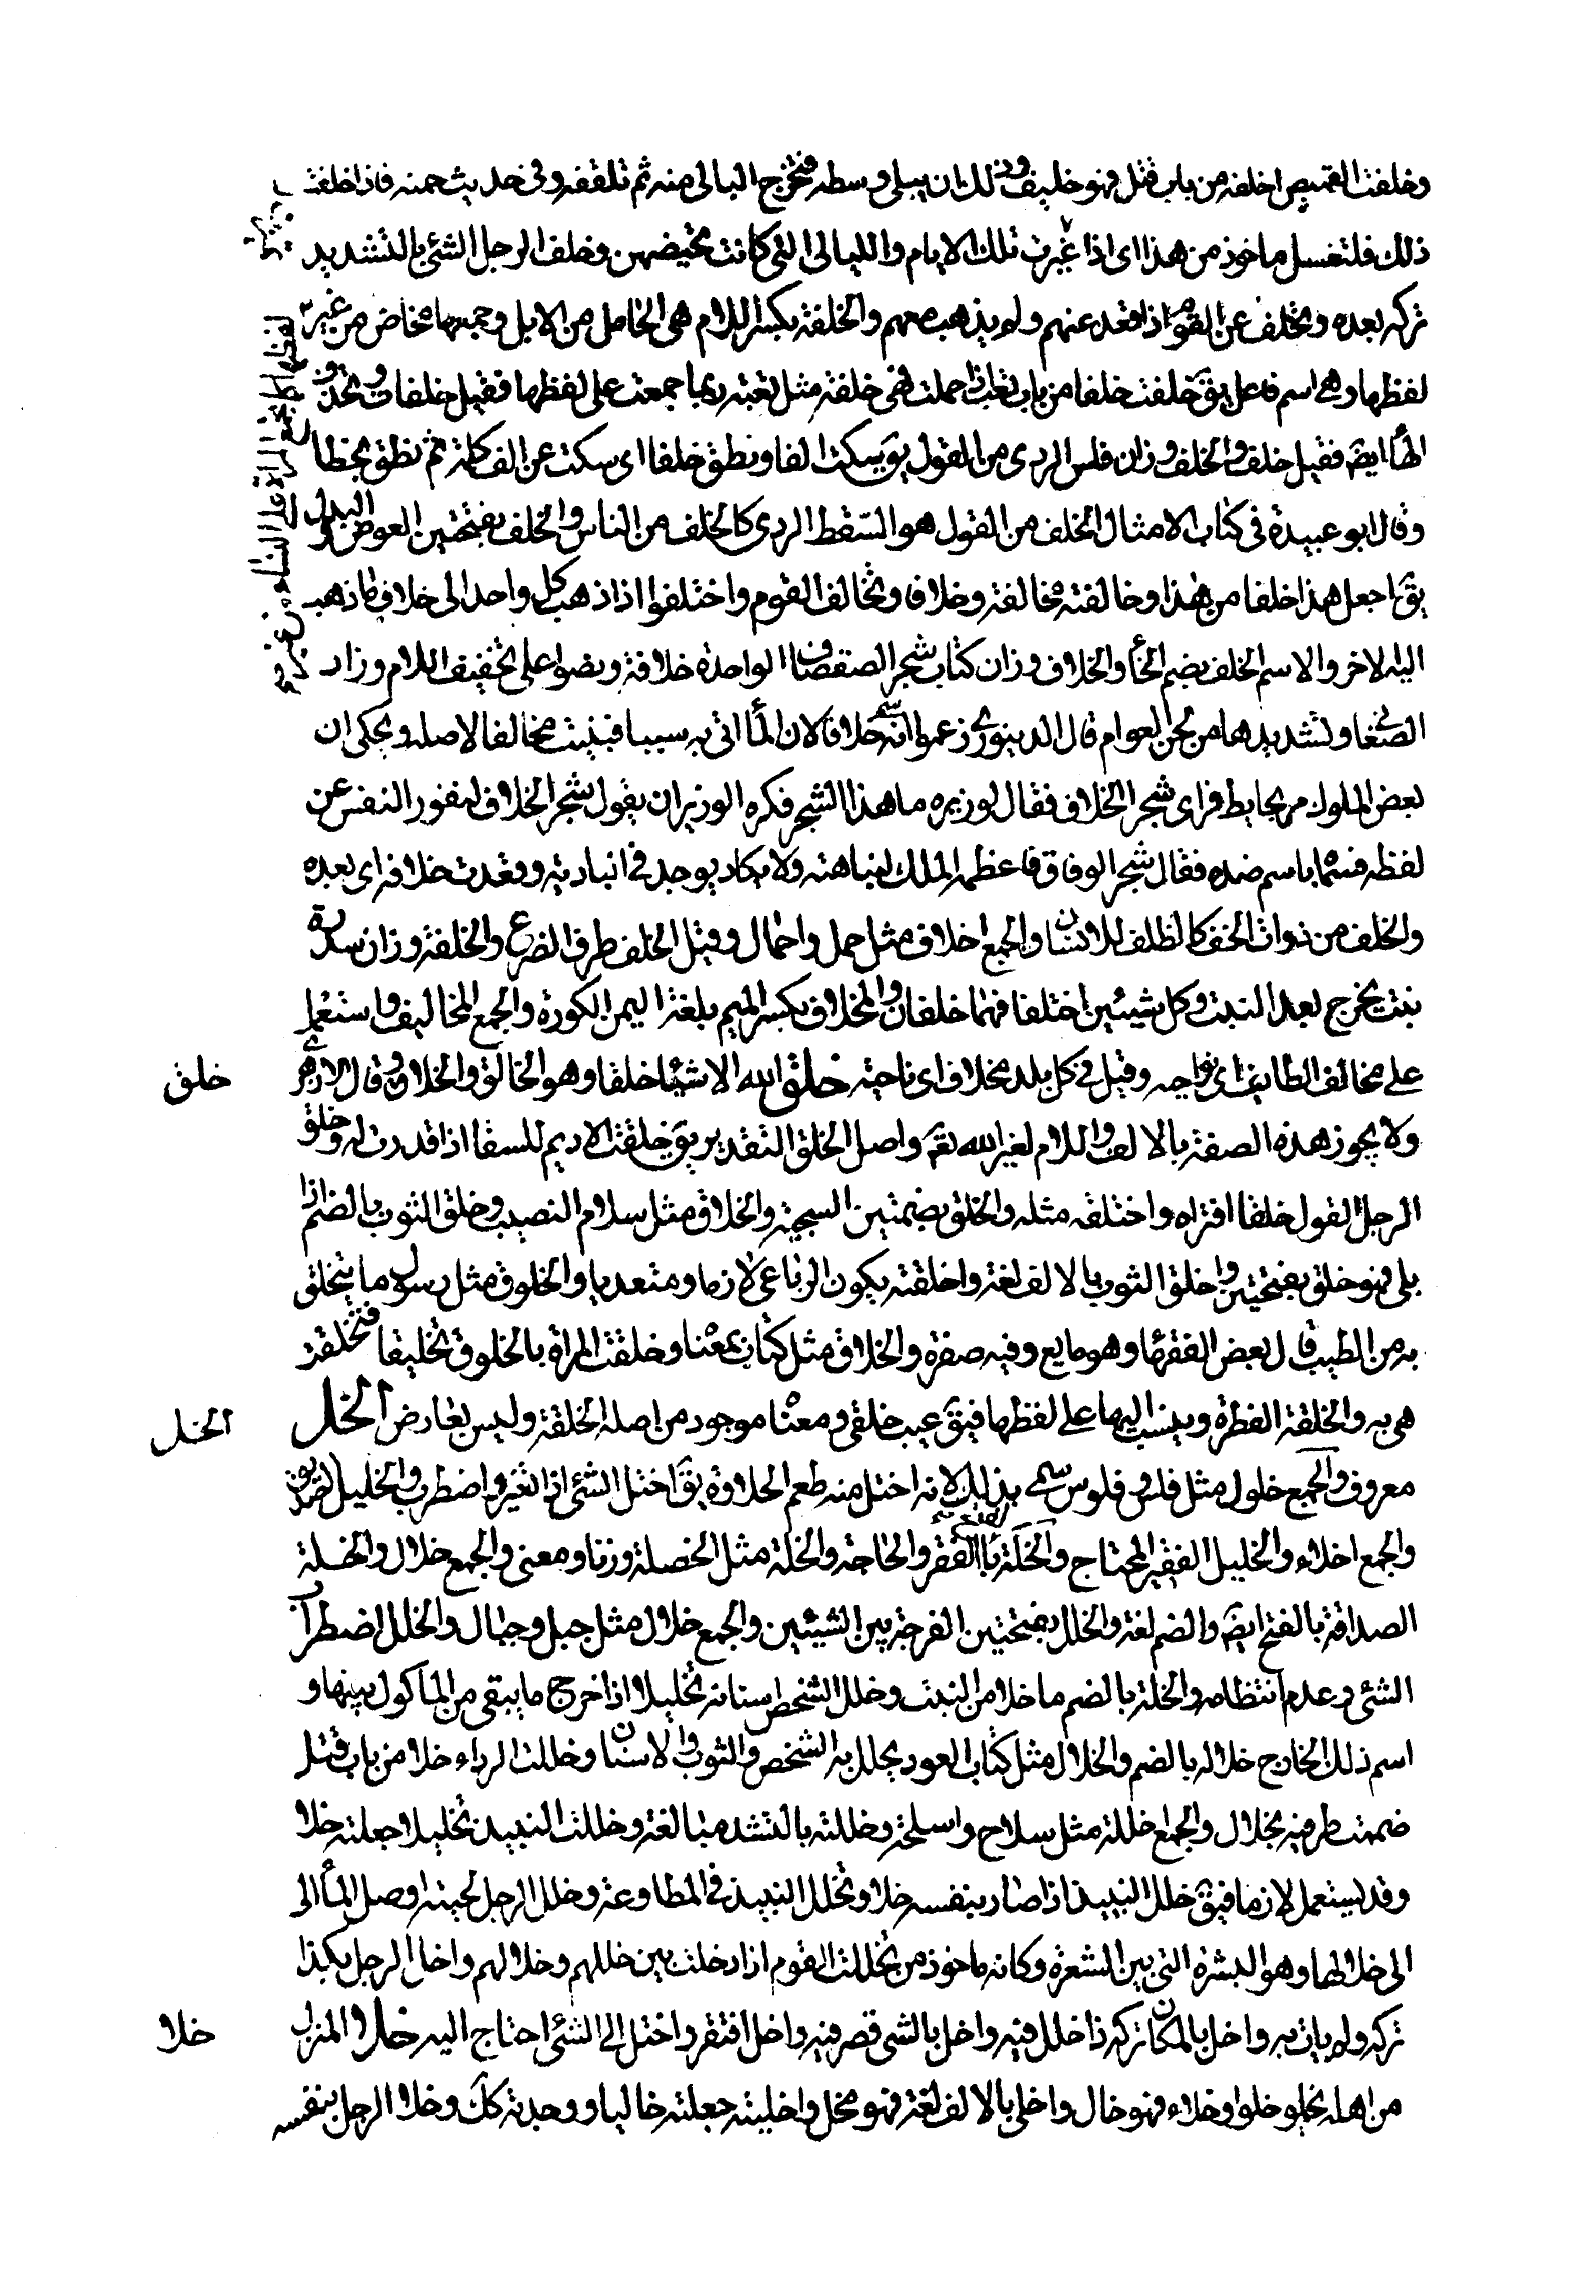 وخلفت القميص اخلفه من باب قتل فهو خليف وذلك ان يبلى وسطه فتخرج البالى منه ثم تلفقه وفى حديث حمنه فاذا خلفت
ذلك فلتغسل ماخوذ من هذا اى اذا غيرت تلك الايام والليالى التى كانت تحيضهن وخلف الرجل الشئ بالتشديد
تركه بعده وتخلف عن القوم اذا قعد عنهم ولم يذهب معهم والخلفة بكسر اللام هى الحامل من الابل وجمعها مخاض من غير
لفظها وهى اسم فاعل يق خلفت خلفا من باب تعب اذا حملت فهى خلفة مثل تعبة ربما جمعت على لفظها فقيل خلفات وتحذف
الهأ ايضَ فقيل خلف والخلف وزان فلس الردى من القول يق سكت الفا ونطق خلفا اى سكت عن الف كلمة ثم نطق بخطأ
وقال ابو عبيدة فى كتاب الامثال الخلف من القول هو السقط الردى كالخلف من الناس والخلف بفتحتين العوض والبدل
يق اجعل هذا خلفا من هذا وخالفته مخالفة وخلافا وتخالف القوم واختلفوا اذا ذهب كل واحد الى خلاف ما ذهب
اليه الاخر والاسم الخلف بضم الخأ والخلاف وزان كتاب شجر الصفصاف الواحدة خلافة ونصوا على تخفيف اللام وزاد
الصغانى وتشديدها من لحن العوام قال الدينورى زعموا انه سمى خلافا لان المأ اتى به سبيا فنبت مخالفا لاصله ويحكى ان
بعض الملوك مر بحايط فراى شجر الخلاف فقال لوزيره ما هذا الشجر فكره الوزير ان يقول شجر الخلاف لنفور النفس عن
لفظه فسماه باسم ضده فقال شجر الوفاق فاعظمه الملك لنباهته ولا يكاد يوجد فى البادية وقعدت خلافه اى بعده
والخلف من ذوات الخف كالظلف للانسان والجمع اخلاف مثل حمل واحمال وقيل الخلف طرف الضرع والخلفة وزان سدرة
نبت يخرج بعد النبت وكل شيئين اختلفا فهما خلفان والمخلاف بكسر الميم بلغة اليمن الكورة والجمع المخاليف واستعمل
على مخالف الطايف اى نواحيه وقيل فى كل بلد مخلاف اى ناحية خلق الله الاشيأ خلقا وهو الخالق والخلاق وقال الازهرى
خلق
ولا يجوز هذه الصفة بالالف واللام لغير الله تع واصل الخلق التقدير يق خلقت الاديم للسقأ اذا قدرت له وخلق
الرجل القول خلقا افتراه واختلقه مثله والخلق بضمتين السجية والخلاق مثل سلام النصيب وخلق الثوب بالضم اذا
بلى فهو خلق بفتحتين واخلق الثوب بالالف لغة واخلقته يكون الرباعى لازما ومتعديا والخلوق مثل رسول ما يتخلق
به من الطيب قال بعض الفقهأ وهو مايع وفيه صفرة والخلاق مثل كتاب بمعناه وخلقت المراة بالخلوق تخليقا فتخلقت
هى به والخلقة الفطرة وينسب اليها على لفظها فيق عيب خلقى ومعناه موجود من اصله الخلقة وليس بعارض الخل
الخل
معروف والجمع خلول مثل فلس وفلوس سمى بذلك لانه اختل منه طعم الحلاوة يق اختل الشئ اذا تغير واضطرب والخليل الصديق
والجمع اخلاء والخليل الفقير المحتاج والخلة بالفتح الفقر والحاجة والخلة مثل الخصلة وزنا ومعنى والجمع خلال والخلة
الصداقة بالفتح ايضَ والضم لغة والخلل بفتحتين الفرجة بين الشيئين والجمع خلال مثل جبل وجبال والخلل اضطراب
الشئ وعدم انتظامه والخلة بالضم ما خلا من النبت وخلل الشخص اسنانه تخليلا اذا اخرج ما يبقى من الماكول بينها و
اسم ذلك الخارج خلالة بالضم والخلال مثل كتاب العود يخلل به الشخص والثوب والاسنان وخللت الرداء خلا من باب قتل
ضممت طرفيه بخلال والجمع اخلة مثل سلاح واسلحة وخللته بالتشديد مبالغة وخللت النبيذ تخليلا جعلته خلا
وقد يستعمل لازما فيق خلل النبيذ اذا صار بنفسه خلا وتخلل النبيذ فى المطاوعة وخلل الرجل لحيته اوصل المأ الى
الى خلالها وهو البشرة التى بين الشعرة وكانه ماخوذ من تخللت القوم اذا دخلت بين خللهم وخلالهم واخل الرجل بكذا
تركه ولم يات به واخل بالمكان تركه ذا خلل فيه واخل بالشئ قصر فيه واخل افتقر واختل الى الشئ احتاج اليه خلا المنزل
خلا
من اهله يخلو خلوا وخلاء فهو خال واخلى بالالف لغة فهو مخل واخليته جعلته خاليا ووجدته كك وخلا الرجل بنفسه